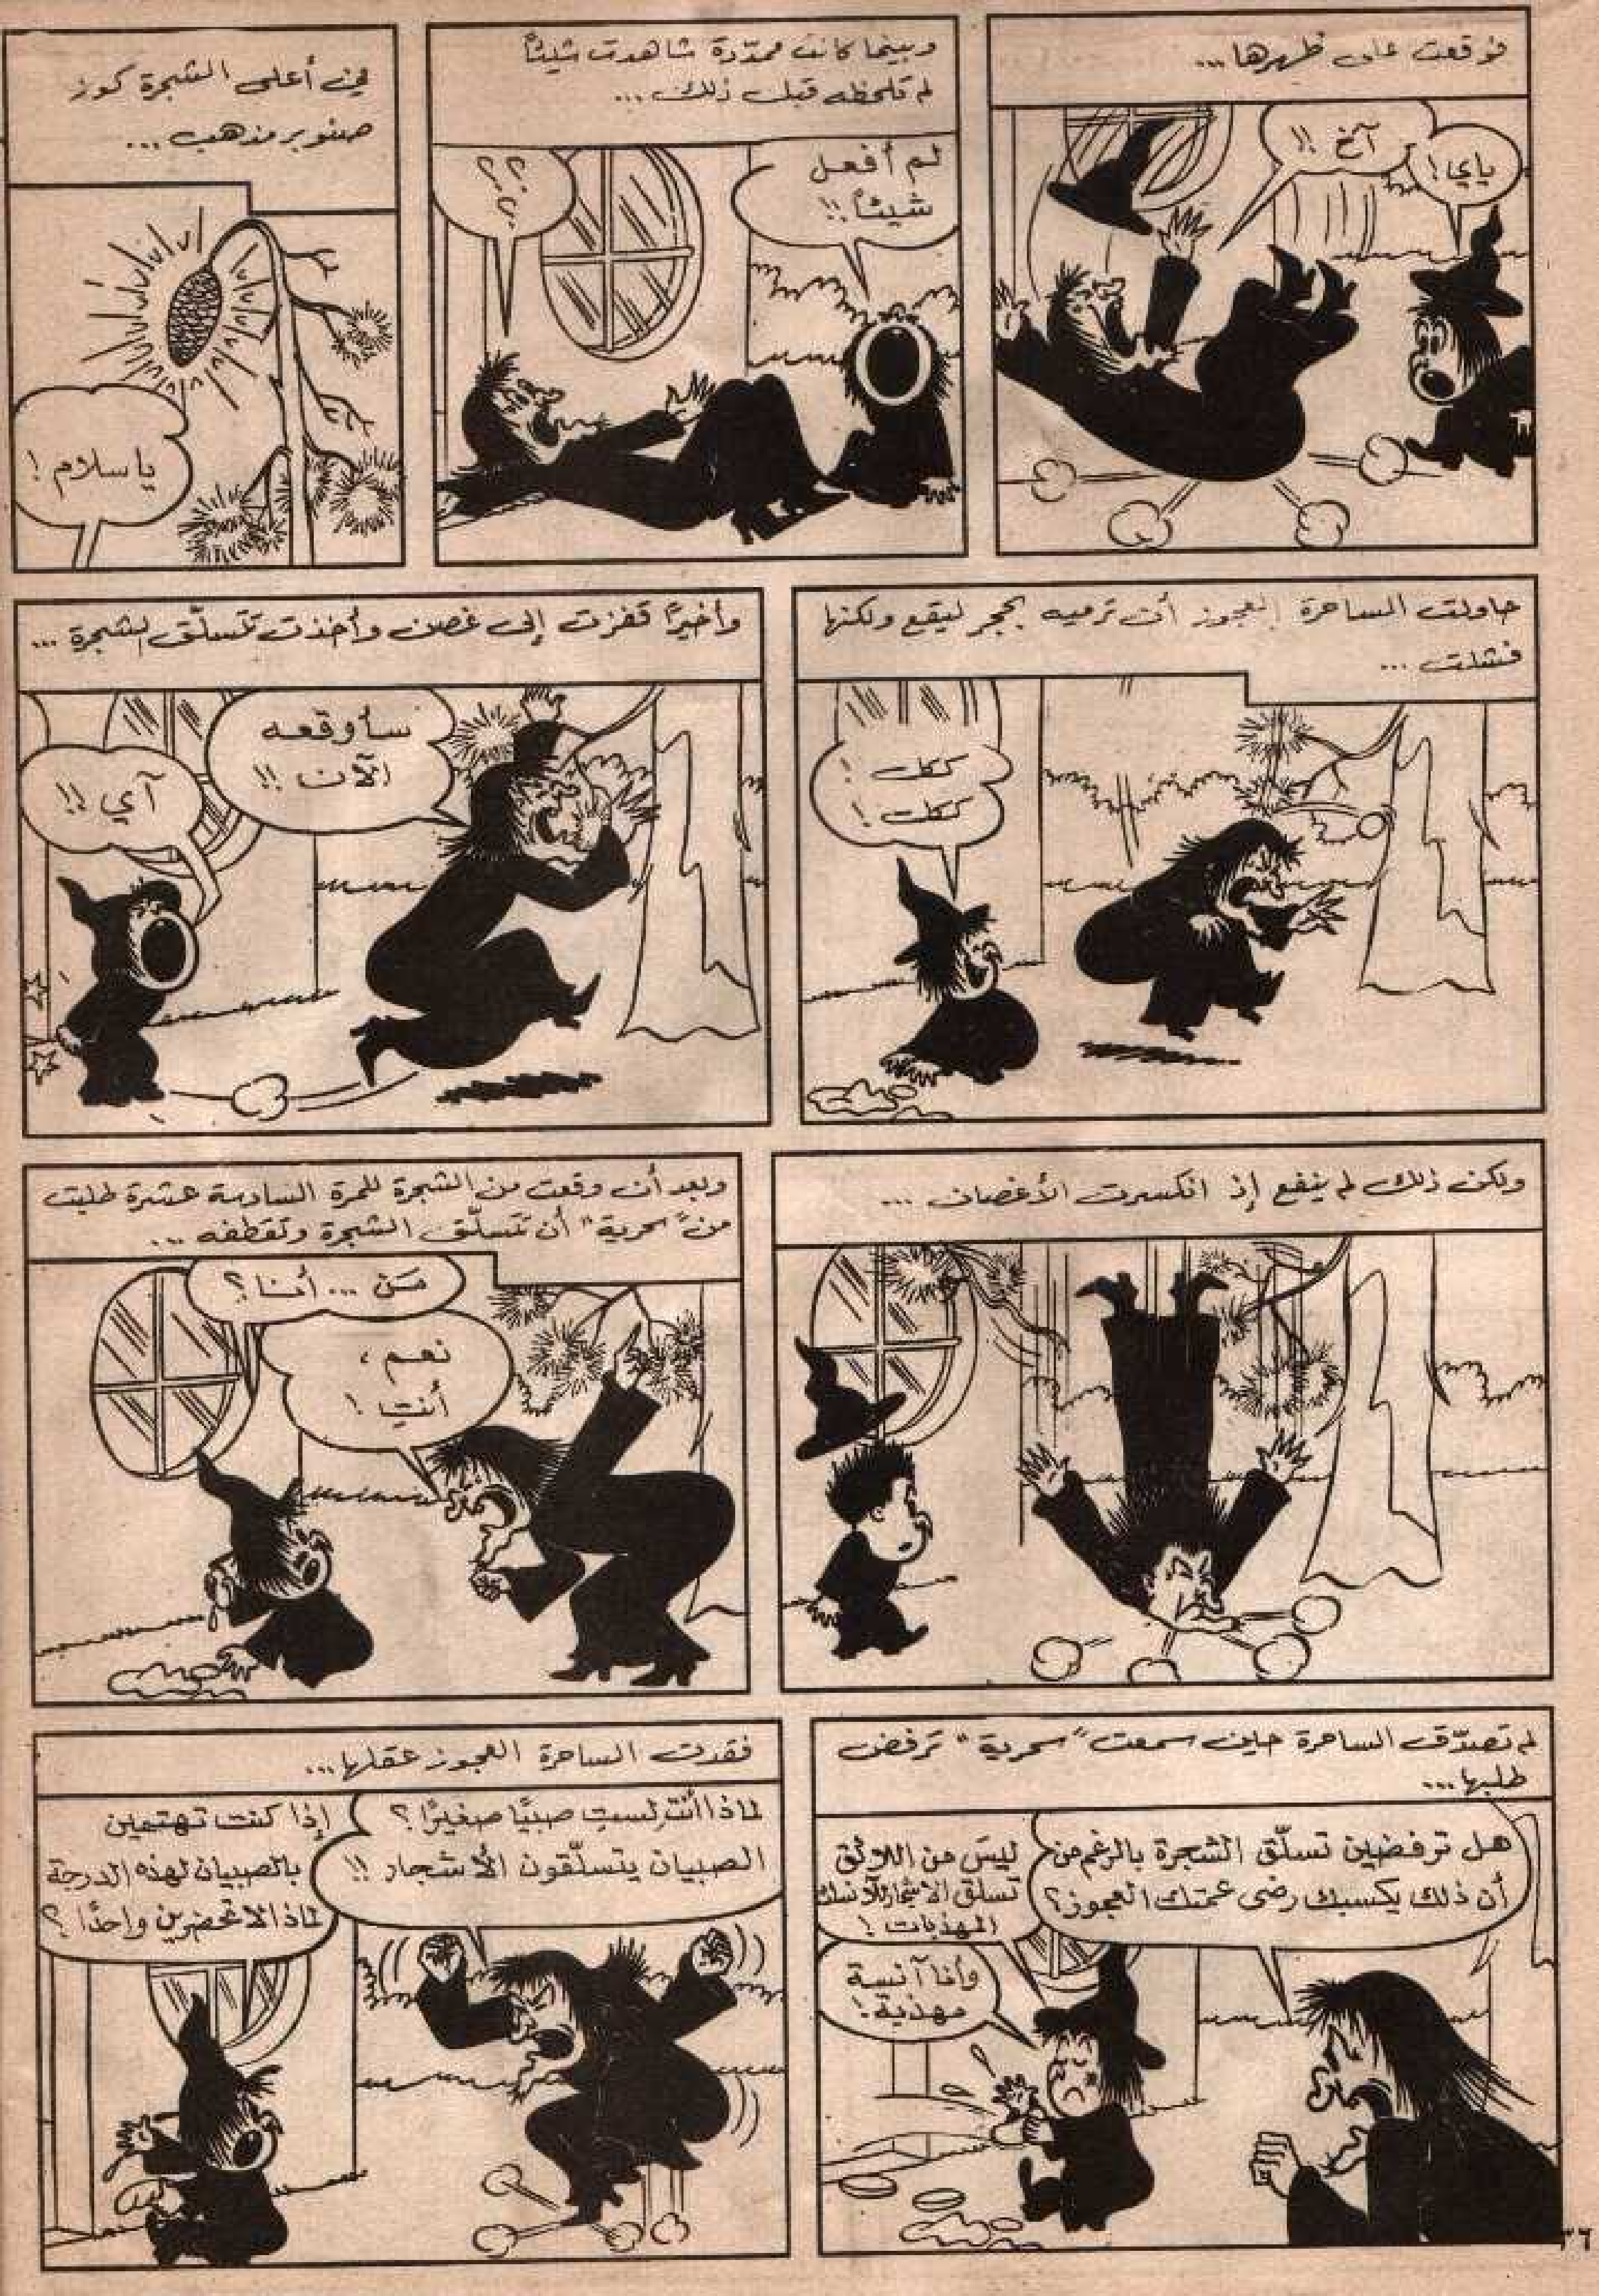 فوقعت على ظهرها...
آخ !!
ياي !
وبينما كانت ممدّدة شاهدت شيئاً
لم تلحظه قبل ذلك...
لم أفعل
شيئاً !!
في أعلى الشجرة كوز
صنوبر مذهب...
يا سلام !
حاولت الساحرة العجوز أن ترميه بحجر ليقع ولكنها
فشلت...
ككك !
ككك !
وأخيرًا قفزت إلى غصن وأخذت تتسلّق الشجرة...
سأوقعه
الآن !!
آي !!
ولكن ذلك لم ينفع إذ انكسرت الأغصان...
وبعد أن وقعت من الشجرة للمرة السادسة عشرة طلبت
من "سحرية" أن تتسلّق الشجرة وتقطفه...
مَن ... أنا ؟
نعم ،
أنتِ !
لم تصدّق الساحرة حين سمعت "سحرية" ترفض
طلبها...
هل ترفضين تسلّق الشجرة بالرغم من
أن ذلك يكسبك رضى عمتك العجوز؟
ليسَ من اللائق
تسلق الاشجار للآنسات
المهذبات !
وأنا آنسة
مهذبة !
فقدت الساحرة العجوز عقلها...
لماذا أنتِ لستِ صبيًا صغيرًا ؟
الصبيان يتسلّقون الأشجار !!
إذا كنت تهتمين
بالصبيان لهذه الدرجة
لماذا لا تحضرين واحدًا ؟
٣٦